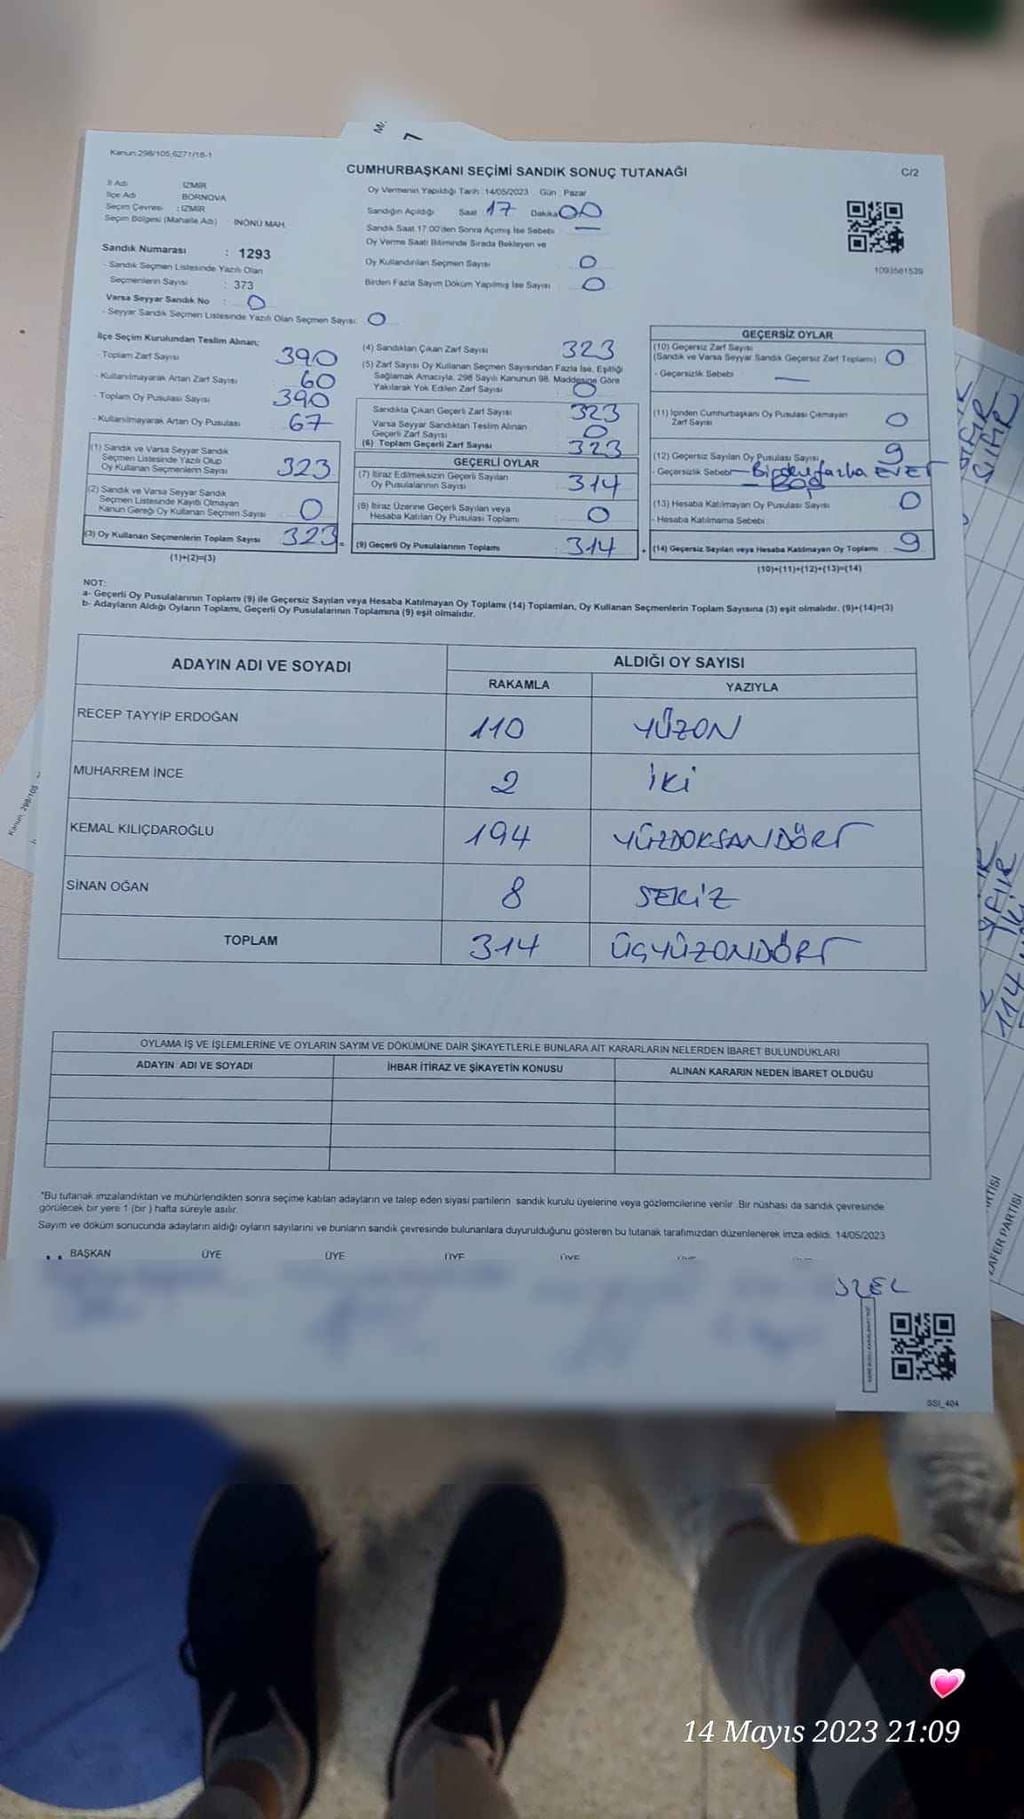 Kanun:298/105,6271/18-1
CUMHURBAŞKANI SEÇİMİ SANDIK SONUÇ TUTANAĞI
C/2
İl Adı İZMİR
İlçe Adı BORNOVA
Seçim Çevresi : İZMİR
Seçim Bölgesi (Mahalle Adı) : İNÖNÜ MAH.
Oy Vermenin Yapıldığı Tarih :14/05/2023 Gün : Pazar
Sandığın Açıldığı Saat 17 Dakika 00
Sandık Saat 17:00'den Sonra Açımış İse Sebebi —
Oy Verme Saati Bitiminde Sırada Bekleyen ve
Oy Kullandırılan Seçmen Sayısı 0
Birden Fazla Sayım Döküm Yapılmış İse Sayısı 0
1093581539
Sandık Numarası : 1293
- Sandık Seçmen Listesinde Yazılı Olan
Seçmenlerin Sayısı : 373
Varsa Seyyar Sandık No : 0
- Seyyar Sandık Seçmen Listesinde Yazılı Olan Seçmen Sayısı: 0
İlçe Seçim Kurulundan Teslim Alınan;
- Toplam Zarf Sayısı 390
- Kullanılmayarak Artan Zarf Sayısı 60
- Toplam Oy Pusulası Sayısı 390
- Kullanılmayarak Artan Oy Pusulası 67
(1) Sandık ve Varsa Seyyar Sandık
Seçmen Listesinde Yazılı Olup
Oy Kullanan Seçmenlerin Sayısı 323
(2) Sandık ve Varsa Seyyar Sandık
Seçmen Listesinde Kayıtlı Olmayan
Kanun Gereği Oy Kullanan Seçmen Sayısı 0
(3) Oy Kullanan Seçmenlerin Toplam Sayısı 323
(1)+(2)=(3)
(4) Sandıktan Çıkan Zarf Sayısı 323
(5) Zarf Sayısı Oy Kullanan Seçmen Sayısından Fazla İse, Eşitliği
Sağlamak Amacıyla, 298 Sayılı Kanunun 98. Maddesine Göre
Yakılarak Yok Edilen Zarf Sayısı 0
Sandıkta Çıkan Geçerli Zarf Sayısı 323
Varsa Seyyar Sandıktan Teslim Alınan
Geçerli Zarf Sayısı 0
(6) Toplam Geçerli Zarf Sayısı 323
GEÇERLİ OYLAR
(7) İtiraz Edilmeksizin Geçerli Sayılan
Oy Pusulalarının Sayısı 314
(8) İtiraz Üzerine Geçerli Sayılan veya
Hesaba Katılan Oy Pusulası Toplamı 0
(9) Geçerli Oy Pusulalarının Toplamı 314
GEÇERSİZ OYLAR
(10) Geçersiz Zarf Sayısı
(Sandık ve Varsa Seyyar Sandık Geçersiz Zarf Toplamı) 0
- Geçersizlik Sebebi —
(11) İçinden Cumhurbaşkanı Oy Pusulası Çıkmayan
Zarf Sayısı 0
(12) Geçersiz Sayılan Oy Pusulası Sayısı 9
Geçersizlik Sebebi — Birden fazla EVET
— BOŞ
(13) Hesaba Katılmayan Oy Pusulası Sayısı 0
- Hesaba Katılmama Sebebi
(14) Geçersiz Sayılan veya Hesaba Katılmayan Oy Toplamı 9
(10)+(11)+(12)+(13)=(14)
NOT:
a- Geçerli Oy Pusulalarının Toplamı (9) ile Geçersiz Sayılan veya Hesaba Katılmayan Oy Toplamı (14) Toplamları, Oy Kullanan Seçmenlerin Toplam Sayısına (3) eşit olmalıdır. (9)+(14)=(3)
b- Adayların Aldığı Oyların Toplamı, Geçerli Oy Pusulalarının Toplamına (9) eşit olmalıdır.
ADAYIN ADI VE SOYADI
ALDIĞI OY SAYISI
RAKAMLA YAZIYLA
RECEP TAYYİP ERDOĞAN 110 YÜZON
MUHARREM İNCE 2 İKİ
KEMAL KILIÇDAROĞLU 194 YÜZDOKSANDÖRT
SİNAN OĞAN 8 SEKİZ
TOPLAM 314 ÜÇYÜZONDÖRT
OYLAMA İŞ VE İŞLEMLERİNE VE OYLARIN SAYIM VE DÖKÜMÜNE DAİR ŞİKAYETLERLE BUNLARA AİT KARARLARIN NELERDEN İBARET BULUNDUKLARI
ADAYIN ADI VE SOYADI İHBAR İTİRAZ VE ŞİKAYETİN KONUSU ALINAN KARARIN NEDEN İBARET OLDUĞU
*Bu tutanak imzalandıktan ve mühürlendikten sonra seçime katılan adayların ve talep eden siyasi partilerin sandık kurulu üyelerine veya gözlemcilerine verilir. Bir nüshası da sandık çevresinde
görülecek bir yere 1 (bir ) hafta süreyle asılır.
Sayım ve döküm sonucunda adayların aldığı oyların sayılarını ve bunların sandık çevresinde bulunanlara duyurulduğunu gösteren bu tutanak tarafımızdan düzenlenerek imza edildi. 14/05/2023
BAŞKAN ÜYE ÜYE ÜYE ÜYE
SSI_404
Kanun: 298/105
114
ZAFER PARTİSİ
14 Mayıs 2023 21:09